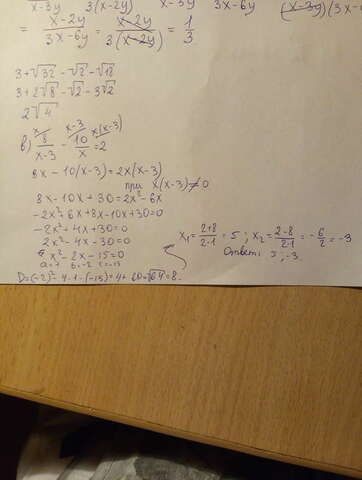 x-3y 3(x-2y) x-3y 3x-6y (x-3y)(3x
= x-2y / 3x-6y = x-2y / 3(x-2y) = 1/3
3+√32-√2-√18
3+2√8-√2-3√2
2√4
в) 8/x-3 - 10/x = 2
x x-3 x(x-3)
8x-10(x-3)=2x(x-3)
при x(x-3)≠0
8x-10x+30=2x²-6x
-2x²+6x+8x-10x+30=0
-2x²+4x+30=0
2x²-4x-30=0
x²-2x-15=0
a=1 b=-2 c=-15
D=(-2)²-4·1·(-15)=4+60=√64=8
x₁=2+8/2·1=5; x₂=2-8/2·1=-6/2=-3
Ответ: 5; -3